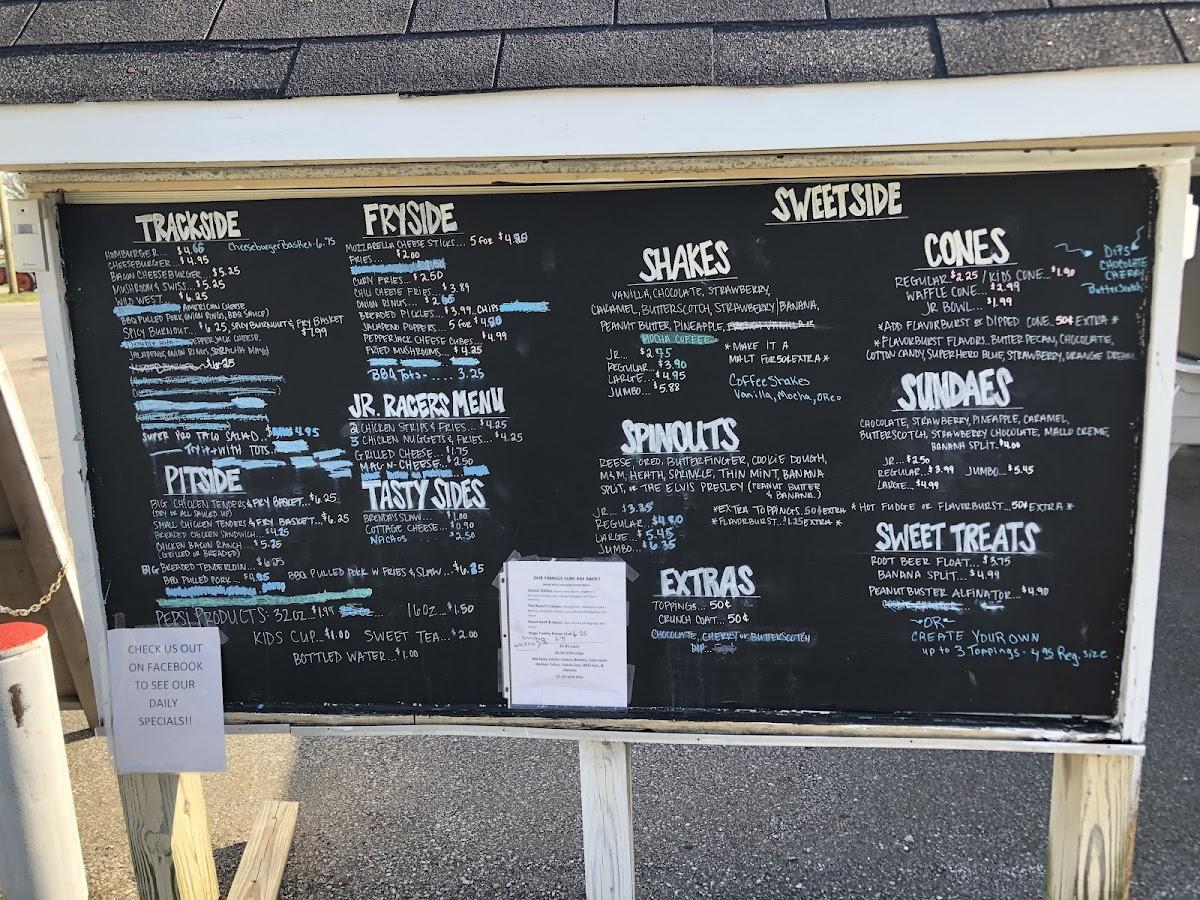 TRACKSIDE
HAMBURGER... $4.
Cheeseburger Basket - 6.75
CHEESEBURGER... $4.95
BACON CHEESEBURGER... $5.25
MUSHROOM & SWISS... $5.25
WILD WEST... $6.25
AMERICAN CHEESE,
BBQ PULLED PORK, ONION RINGS, BBQ SAUCE)
SPICY BURNOUT... $6.25, SPICY BURNOUT & FRY BASKET
$7.99
PEPPERJACK CHEESE,
JALAPENOS, ONION RINGS, SRIRACHA MAYO)
SUPER PRO TACO SALAD... 4.95
Try it with TOTS
PITSIDE
BIG CHICKEN TENDERS & FRY BASKET... $6.25
(DRY OR ALL SAUCED UP)
SMALL CHICKEN TENDERS & FRY BASKET... $6.25
BREADED CHICKEN SANDWICH... $4.25
CHICKEN BACON RANCH... $5.25
(GRILLED OR BREADED)
BIG BREADED TENDERLOIN...
BBQ PULLED PORK...
BBQ PULLED PORK W FRIES & SLAW...
PEPSI PRODUCTS: 32OZ... $1.95 16OZ... $1.50
KIDS CUP... $1.00 SWEET TEA... $2.00
BOTTLED WATER... $1.00
FRYSIDE
MOZZARELLA CHEESE STICKS... 5 for $4.
FRIES... $2.00
CURLY FRIES... $2.50
CHILI CHEESE FRIES... $3.89
ONION RINGS... $2.
BREADED PICKLES... $3.99, CHIPS
JALAPENO POPPERS... 5 for $4.
PEPPERJACK CHEESE CUBES... $4.99
FRIED MUSHROOMS... $4.25
BBQ Tots..... 3.25
JR. RACERS MENU
2 CHICKEN STRIPS & FRIES... $4.25
3 CHICKEN NUGGETS & FRIES... $4.25
GRILLED CHEESE... $1.75
MAC-N-CHEESE... $2.50
TASTY SIDES
BRENDA'S SLAW... $1.00
COTTAGE CHEESE... $0.90
NACHOS $2.50
SWEETSIDE
SHAKES
VANILLA, CHOCOLATE, STRAWBERRY,
CARAMEL, BUTTERSCOTCH, STRAWBERRY/BANANA,
PEANUT BUTTER, PINEAPPLE,
MOCHA COFFEE
JR... $2.75
REGULAR... $3.90
LARGE... $4.95
JUMBO... $5.88
*MAKE IT A
MALT FOR 50¢ EXTRA*
Coffee Shakes
Vanilla, Mocha, Oreo
SPINOUTS
REESE, OREO, BUTTERFINGER, COOKIE DOUGH,
M&M, HEATH, SPRINKLE, THIN MINT, BANANA
SPLIT, OR THE ELVIS PRESLEY (PEANUT BUTTER
& BANANA)
JR... $3.35
REGULAR... $4.80
LARGE... $5.45
JUMBO... $6.35
*EXTRA TOPPINGS .50¢ EXTRA*
*FLAVORBURST... $1.25 EXTRA*
EXTRAS
TOPPINGS... 50¢
CRUNCH COAT... 50¢
CHOCOLATE, CHERRY OR BUTTERSCOTCH
DIP... 50¢
CONES
REGULAR $2.25 / KIDS CONE... $1.90
WAFFLE CONE... $2.99
JR BOWL... $1.99
DIPS
CHOCOLATE
CHERRY
Butterscotch
*ADD FLAVORBURST OR DIPPED CONE 50¢ EXTRA*
*FLAVORBURST FLAVORS, BUTTER PECAN, CHOCOLATE,
COTTON CANDY, SUPERHERO BLUE, STRAWBERRY, ORANGE DREAM
SUNDAES
CHOCOLATE, STRAWBERRY, PINEAPPLE, CARAMEL,
BUTTERSCOTCH, STRAWBERRY CHOCOLATE, MALLO CREME,
BANANA SPLIT $4.00
JR... $2.50
REGULAR... $3.99 JUMBO... $5.45
LARGE... $4.99
* HOT FUDGE OR FLAVORBURST... 50¢ EXTRA *
SWEET TREATS
ROOT BEER FLOAT... $3.75
BANANA SPLIT... $4.99
PEANUT BUSTER ALFINATOR... $4.90
~OR~
CREATE YOUR OWN
up to 3 Toppings - 4.95 Reg. size
OUR FAMOUS SUBS ARE BACK!!
CHECK US OUT
ON FACEBOOK
TO SEE OUR
DAILY
SPECIALS!!